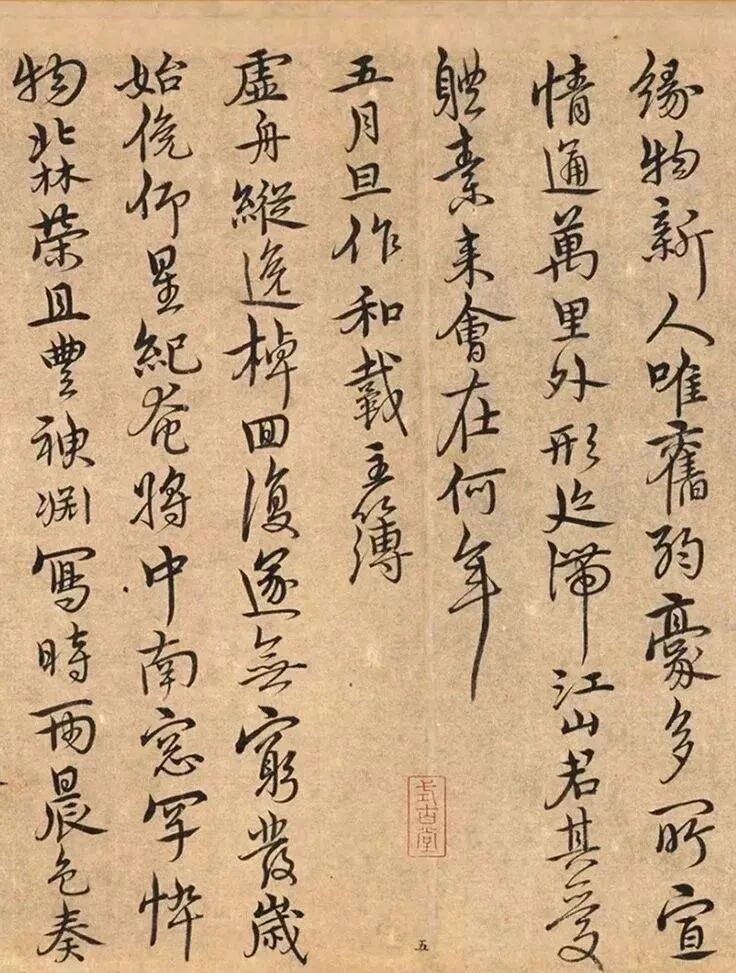 緣物新人唯舊弱豪多所宣
情通萬里外形迹滯江山君其愛
軆素來會在何年
五月旦作和戴主簿
虛舟縱逸棹回復遂無窮發歲
始俛仰星紀奄將中南窓罕悴
物北林榮且豐神渊寫時雨晨色奏
式古堂
五